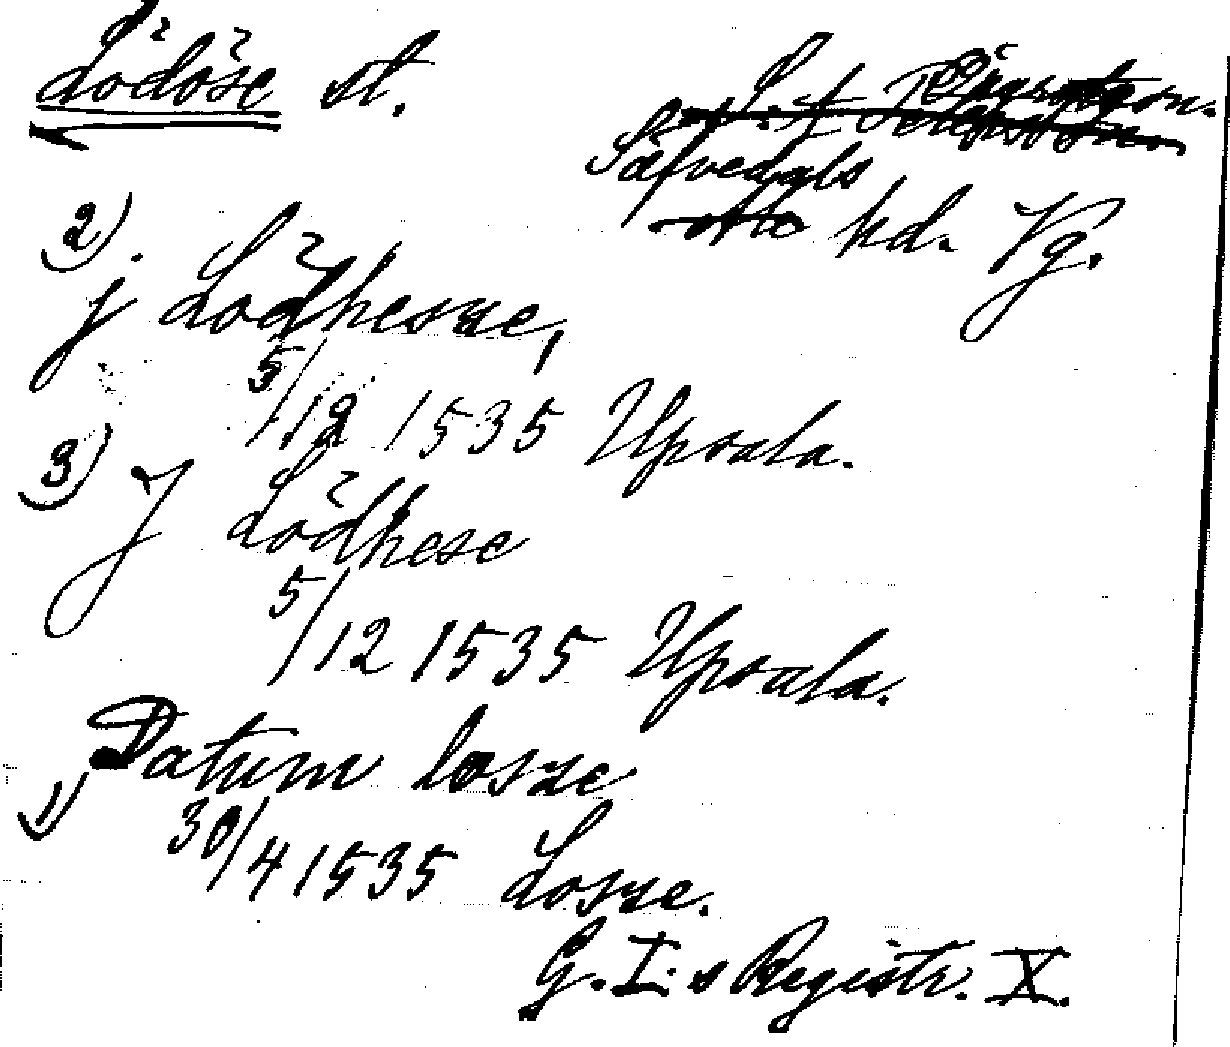 Lödöse st.
Säfvedals
hd. Vg.
2). j Lödhesze,
5/12 1535 Upsala.
3) J Lödhese
5/12 1535 Upsala.
1) Datum losze
30/4 1535 Losze.
G. I:s Registr. X.